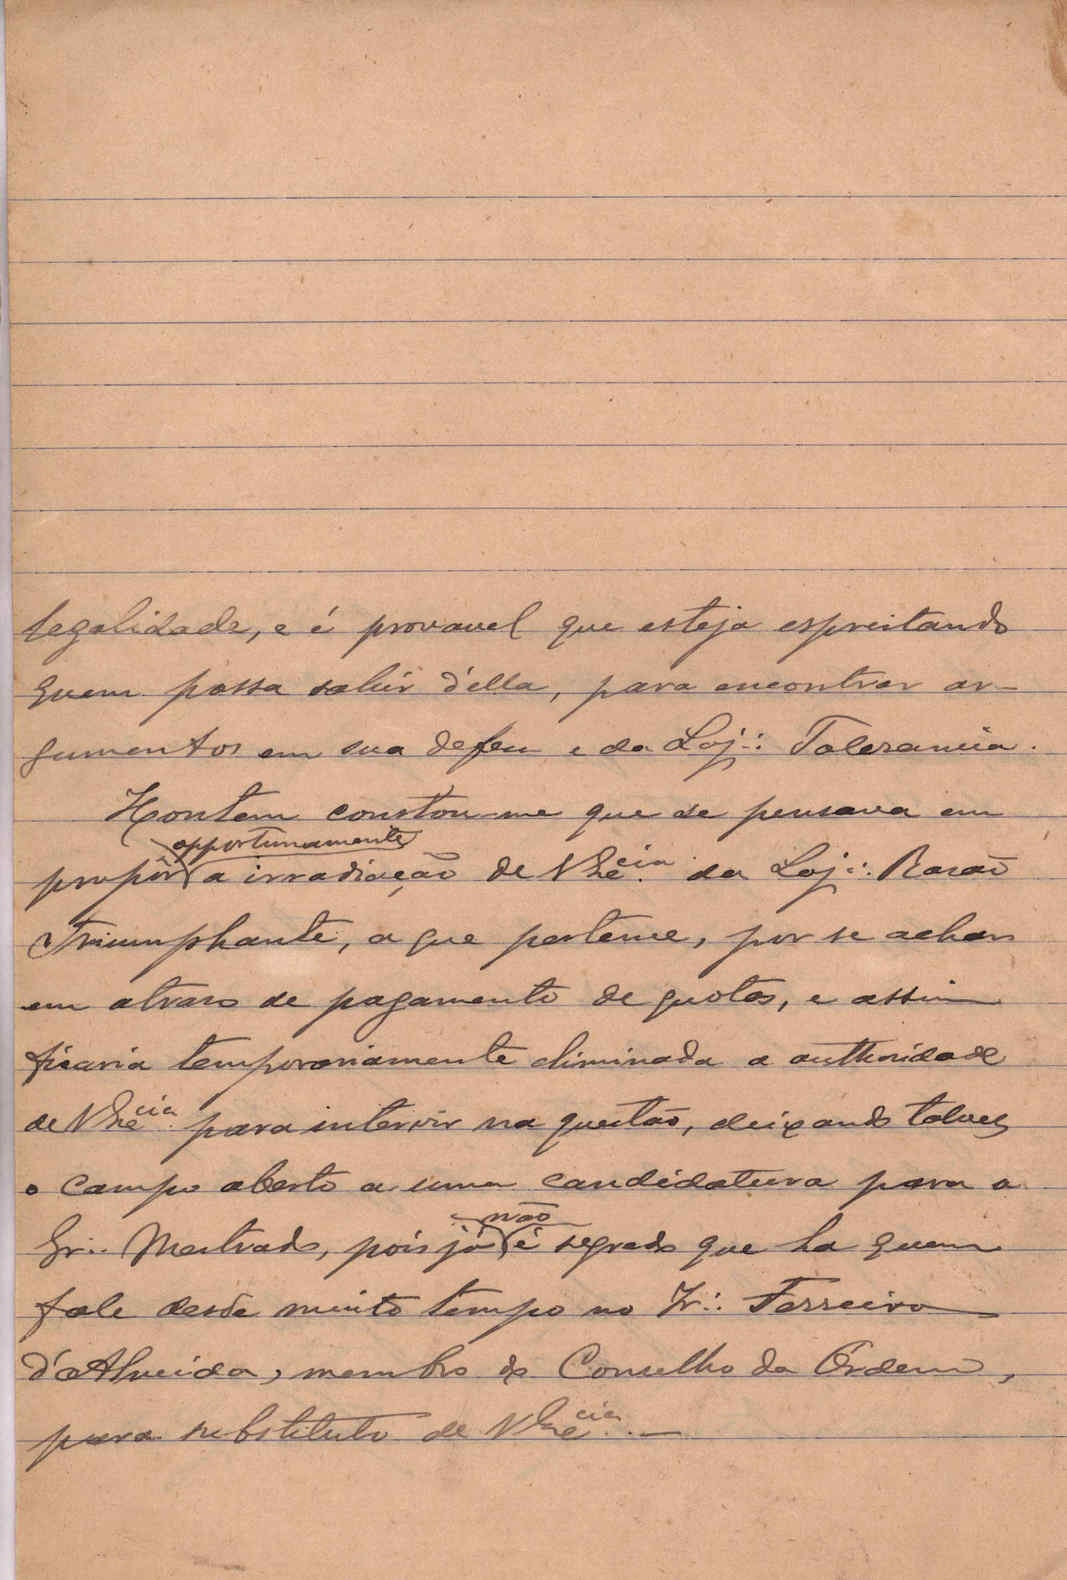 legalidade, e é provavel que esteja espreitando
quem possa sahir d'ella, para encontrar ar-
gumentos em sua defesa e da Loj∴ Tolerancia.
Hontem constou-me que se pensava em
opportunamente
propôr a irradiação de V Exª.cia da Loj∴ Razão
Triumphante, a que pertence, por se achar
em atraso de pagamento de quotas, e assim
ficaria temporariamente eliminada a authoridade
de V Exª.cia para intervir na questão, deixando talvez
o campo aberto a uma candidatura para o
não
Gr∴ Mestrado, pois já é segredo que ha quem
fale desde muito tempo no Ir∴ Ferreira
d'Almeida, membro do Conselho da Ordem,
para substituto de V Exª.cia. —